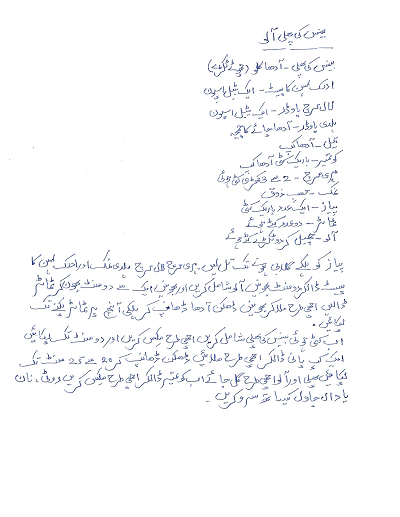 بینس کی پھلی آلو
بینس کی پھلی - آدھا کلو (چھوٹے ٹکڑے)
ادرک لہسن کا پیسٹ - ایک ٹیبل اسپون
لال مرچ پاؤڈر - ایک ٹیبل اسپون
ہلدی پاؤڈر - آدھا چائے کا چمچہ
تیل - آدھا کپ
کوتمیر - باریک کٹی آدھا کپ
ہری مرچ - 2 سے 3 کٹی ہوئی
نمک - حسب ذوق
پیاز - ایک عدد باریک کٹی
ٹماٹر - دو عدد کٹے ہوئے
آلو - چھیل کر دو ٹکڑے کئے ہوئے
پیاز کو ہلکے گلابی ہونے تک تل لیں - ہری مرچ لال مرچ ہلدی نمک اور ادرک لہسن کا
پیسٹ ڈالکر دو منٹ بھونیں آلو شامل کریں اور بھونیں ایک سے دو منٹ بھون کر ٹماٹر
ڈالیں اچھی طرح ملا کر بھونیں ڈھکن آدھا ڈھانپ کر ہلکی آنچ پر ٹماٹر پکنے تک
پکائیں .
اب کٹی ہوئی بینس کی پھلی شامل کریں اچھی طرح مکس کریں اور دو منٹ تک پکائیں
ایک کپ پانی ڈالکر اچھی طرح ملائیں ڈھکن ڈھانپ کر 20 سے 25 منٹ تک
پکائیں پھلی اور آلو اچھی طرح گل جائے اب کوتمیر ڈالکر اچھی طرح مکس کریں روٹی، نان
یا دال چاول کیساتھ سرو کریں -